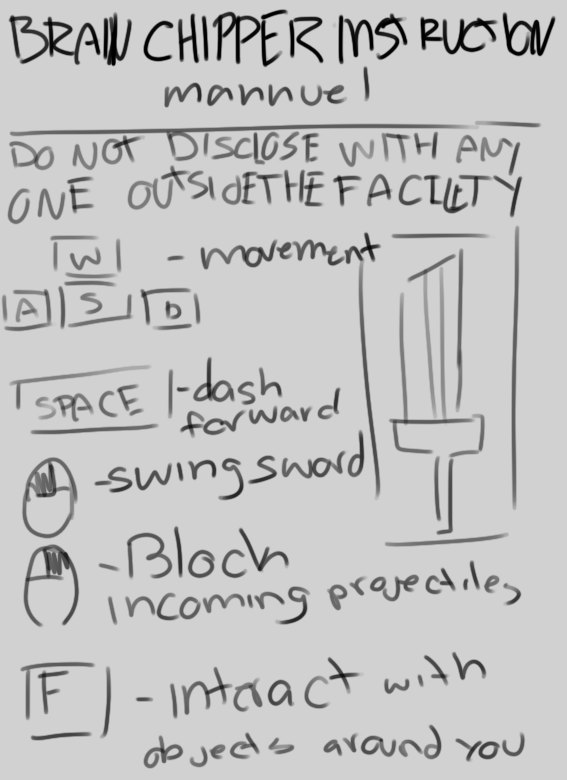 BRAIN CHIPPER INSTRUCTION
mannuel
DO NOT DISCLOSE WITH ANY
ONE OUTSIDE THE FACILITY
W - movement
A S D
SPACE - dash
forward
- swing sword
- Block
incoming projectiles
F - interact with
objects around you